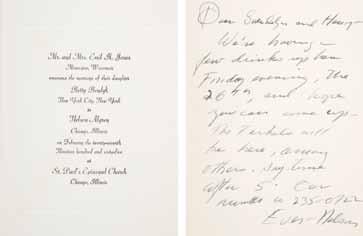 Mr. and Mrs. Emil H. Jones
Mamaroneck, Wisconsin
announce the marriage of their daughter
Betty
New York City, New York
to
Nelson Algren
Chicago, Illinois
on Saturday the twenty-seventh
Nineteen hundred and sixty-five
at
St. Paul's Episcopal Church
Chicago, Illinois
Dear and
We're having a
few drinks up here
Friday evening, the
26th, and hope
you can come up.
The Terkels will
be here, among
others. Any time
after 5. Our
number is 235-0722
Ever - Nelson